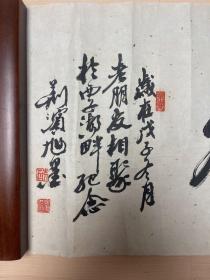 歲在戊子冬月
老朋友相聚
於西子湖畔紀念
荊濱旭墨